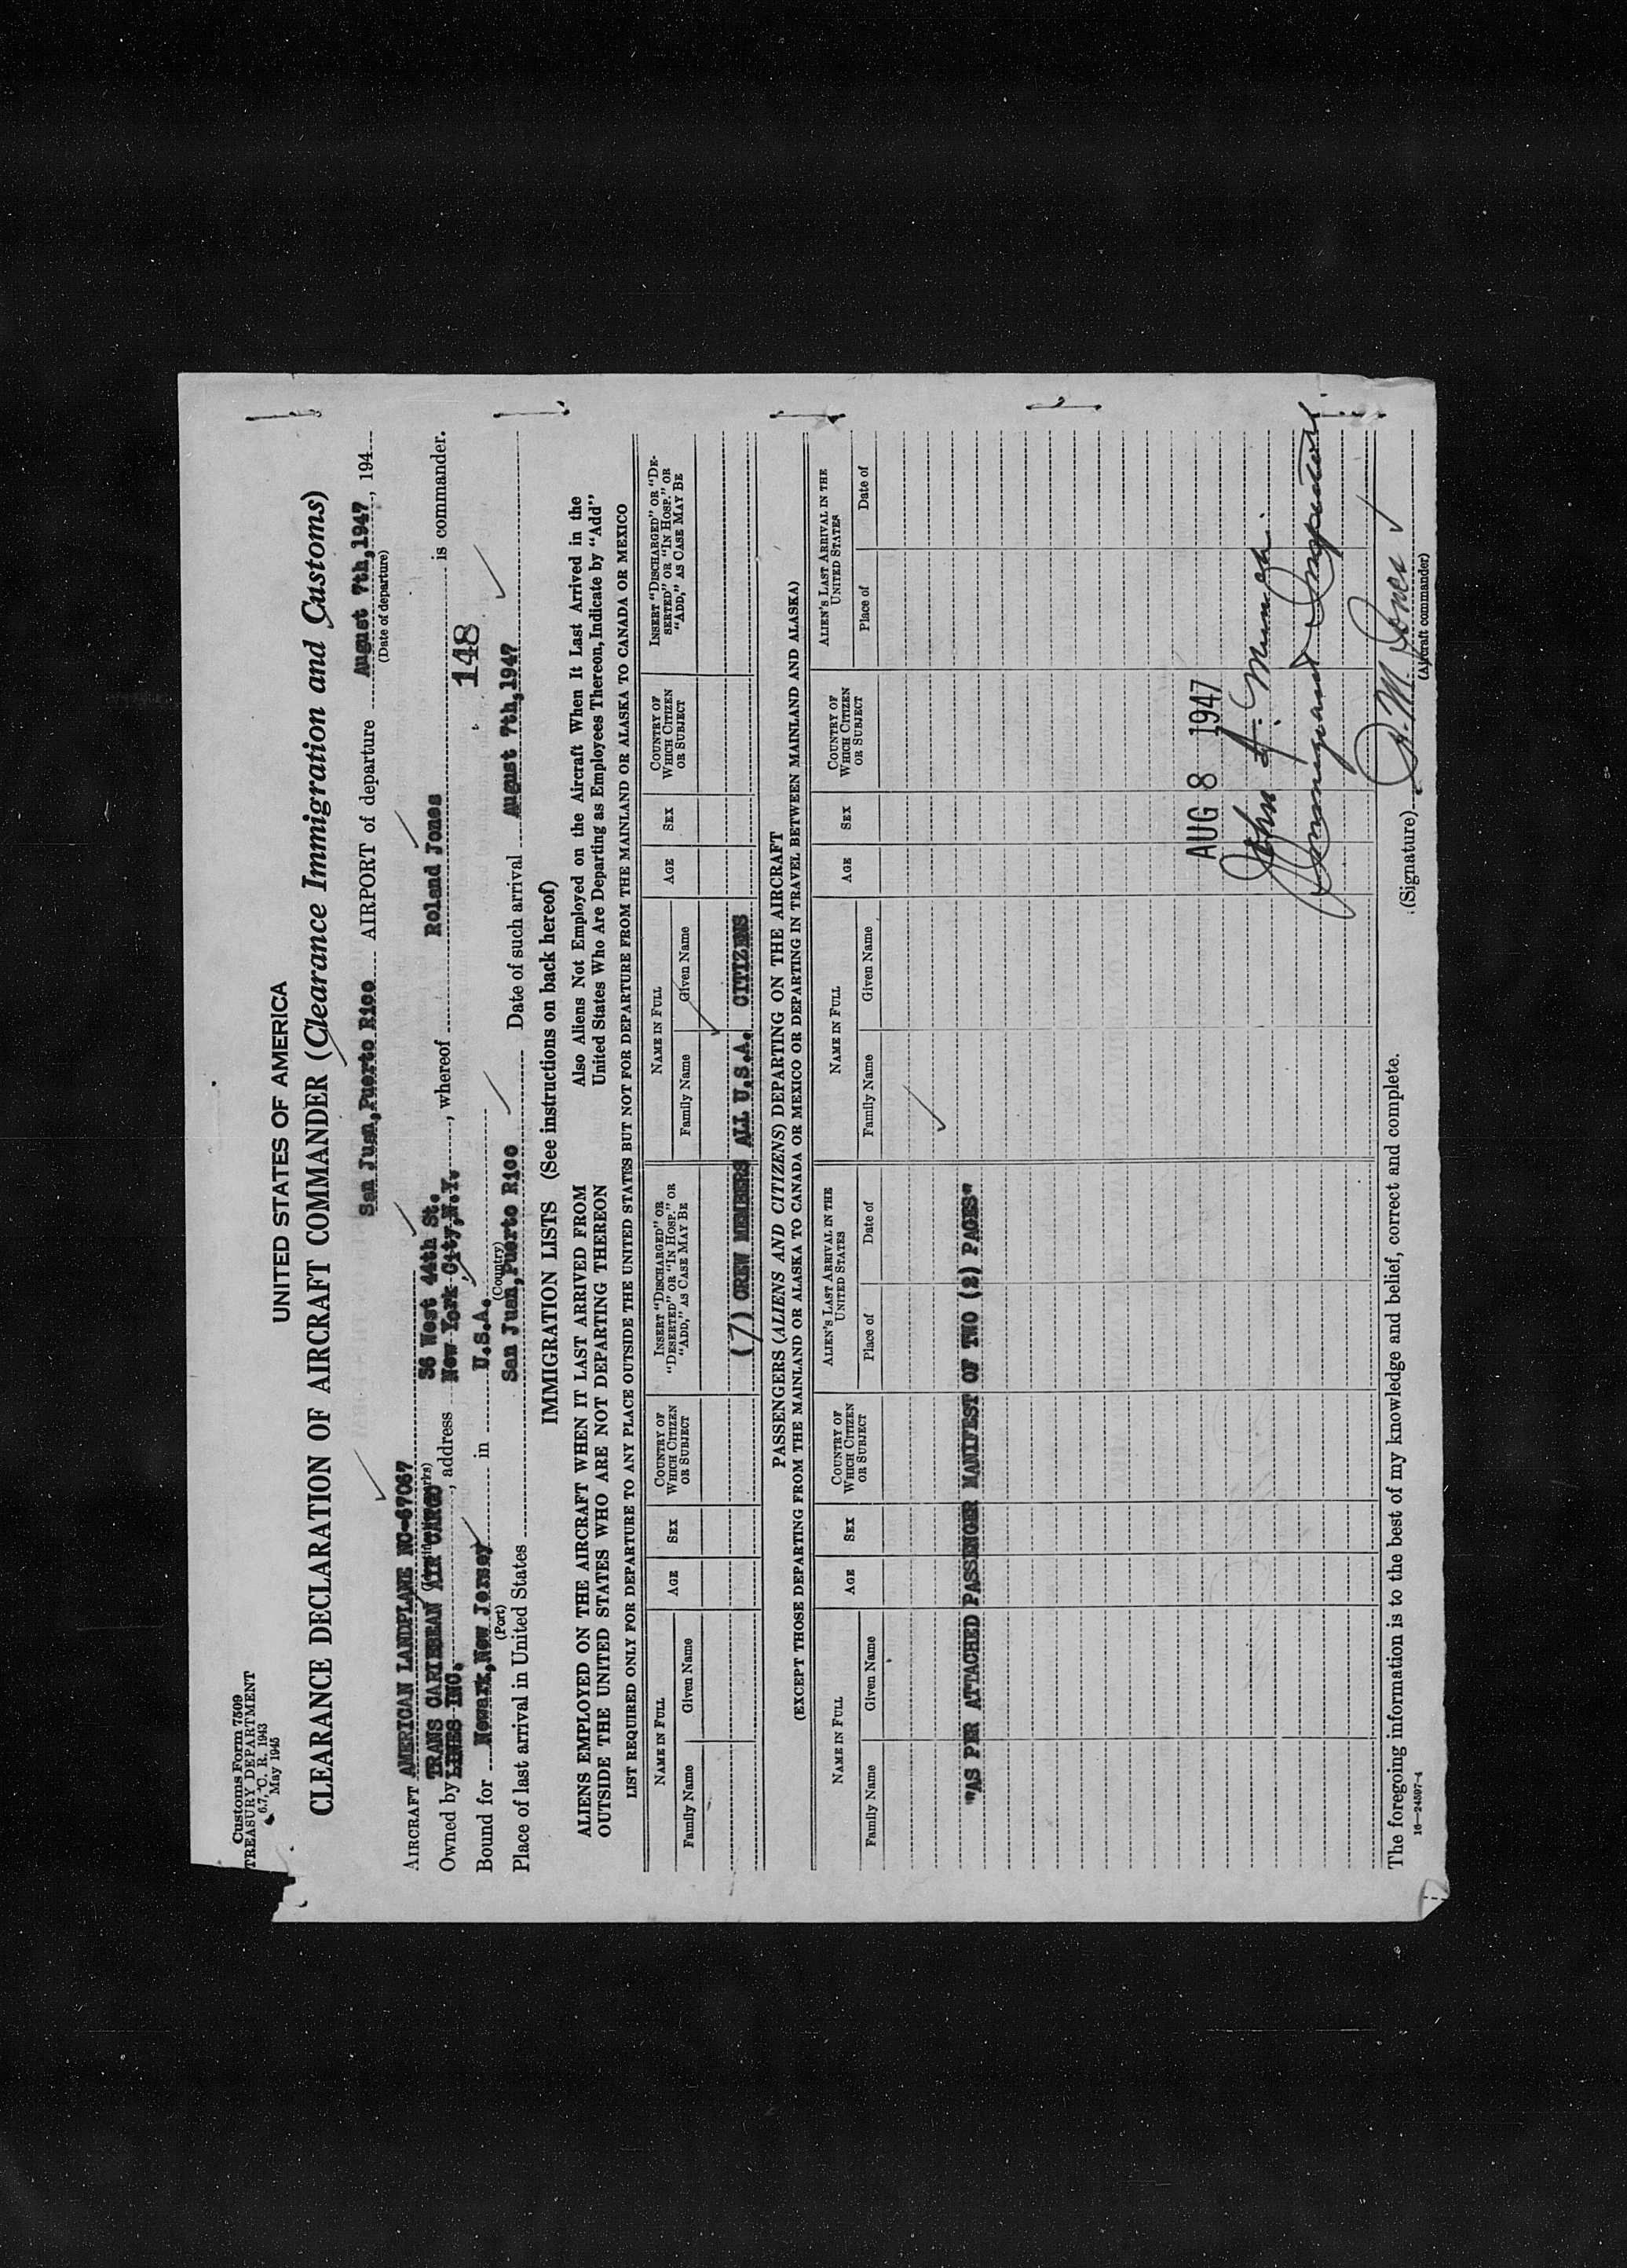 Customs Form 7509
TREASURY DEPARTMENT
6.7, C. R. 1943
May 1945
UNITED STATES OF AMERICA
CLEARANCE DECLARATION OF AIRCRAFT COMMANDER (Clearance Immigration and Customs)
San Juan, Puerto Rico AIRPORT of departure August 7th, 1947, 194
(Date of departure)
AIRCRAFT AMERICAN LANDPLANE NC-67067
TRANS CARIBBEAN AIR CARGO 36 West 44th St. Roland Jones
Owned by LINES INC., address New York City, N.Y., whereof is commander.
148
Bound for Newark, New Jersey in U.S.A.
(Port) (Country)
Place of last arrival in United States San Juan, Puerto Rico Date of such arrival August 7th, 1947
IMMIGRATION LISTS (See instructions on back hereof)
ALIENS EMPLOYED ON THE AIRCRAFT WHEN IT LAST ARRIVED FROM
OUTSIDE THE UNITED STATES WHO ARE NOT DEPARTING THEREON
Also Aliens Not Employed on the Aircraft When It Last Arrived in the
United States Who Are Departing as Employees Thereon, Indicate by "Add"
LIST REQUIRED ONLY FOR DEPARTURE TO ANY PLACE OUTSIDE THE UNITED STATES BUT NOT FOR DEPARTURE FROM THE MAINLAND OR ALASKA TO CANADA OR MEXICO
NAME IN FULL
Family Name Given Name
AGE
SEX
COUNTRY OF
WHICH CITIZEN
OR SUBJECT
INSERT "DISCHARGED" OR
"DESERTED" OR "IN HOSP." OR
"ADD," AS CASE MAY BE
NAME IN FULL
Family Name Given Name
AGE
SEX
COUNTRY OF
WHICH CITIZEN
OR SUBJECT
INSERT "DISCHARGED" OR "DE-
SERTED" OR "IN HOSP." OR
"ADD," AS CASE MAY BE
(7) CREW MEMBERS ALL U.S.A. CITIZENS
PASSENGERS (ALIENS AND CITIZENS) DEPARTING ON THE AIRCRAFT
(EXCEPT THOSE DEPARTING FROM THE MAINLAND OR ALASKA TO CANADA OR MEXICO OR DEPARTING IN TRAVEL BETWEEN MAINLAND AND ALASKA)
NAME IN FULL
Family Name Given Name
AGE
SEX
COUNTRY OF
WHICH CITIZEN
OR SUBJECT
ALIEN'S LAST ARRIVAL IN THE
UNITED STATES
Place of Date of
NAME IN FULL
Family Name Given Name
AGE
SEX
COUNTRY OF
WHICH CITIZEN
OR SUBJECT
ALIEN'S LAST ARRIVAL IN THE
UNITED STATES
Place of Date of
"AS PER ATTACHED PASSENGER MANIFEST OF TWO (2) PAGES"
AUG 8 1947
John F.
Immigrant Inspector
The foregoing information is to the best of my knowledge and belief, correct and complete.
(Signature) R. M. Jones
(Aircraft commander)
16—24597-1